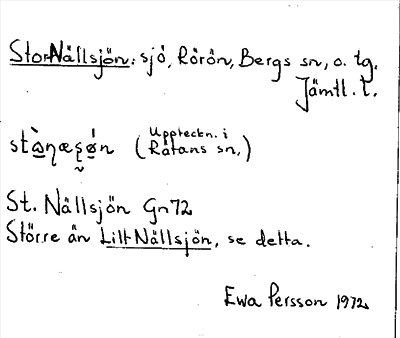 Stor-Nällsjön: sjö, Rörön, Bergs sn, o. tg.
Jämtl. l.
(Uppteckn. i
Rätans sn.)
St. Nällsjön Gn72
Större än Lill-Nällsjön, se detta.
Ewa Persson 1972